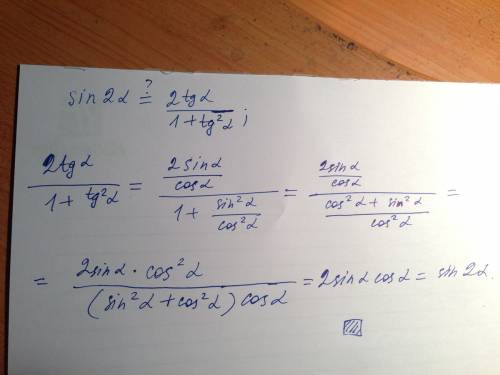 sin 2α ≟ 2tgα / (1 + tg²α) ;
2tgα / (1 + tg²α) = (2sinα / cosα) / (1 + sin²α / cos²α) = (2sinα / cosα) / ((cos²α + sin²α) / cos²α) =
= 2sinα · cos²α / ((sin²α + cos²α) cosα) = 2sinα cosα = sin 2α.